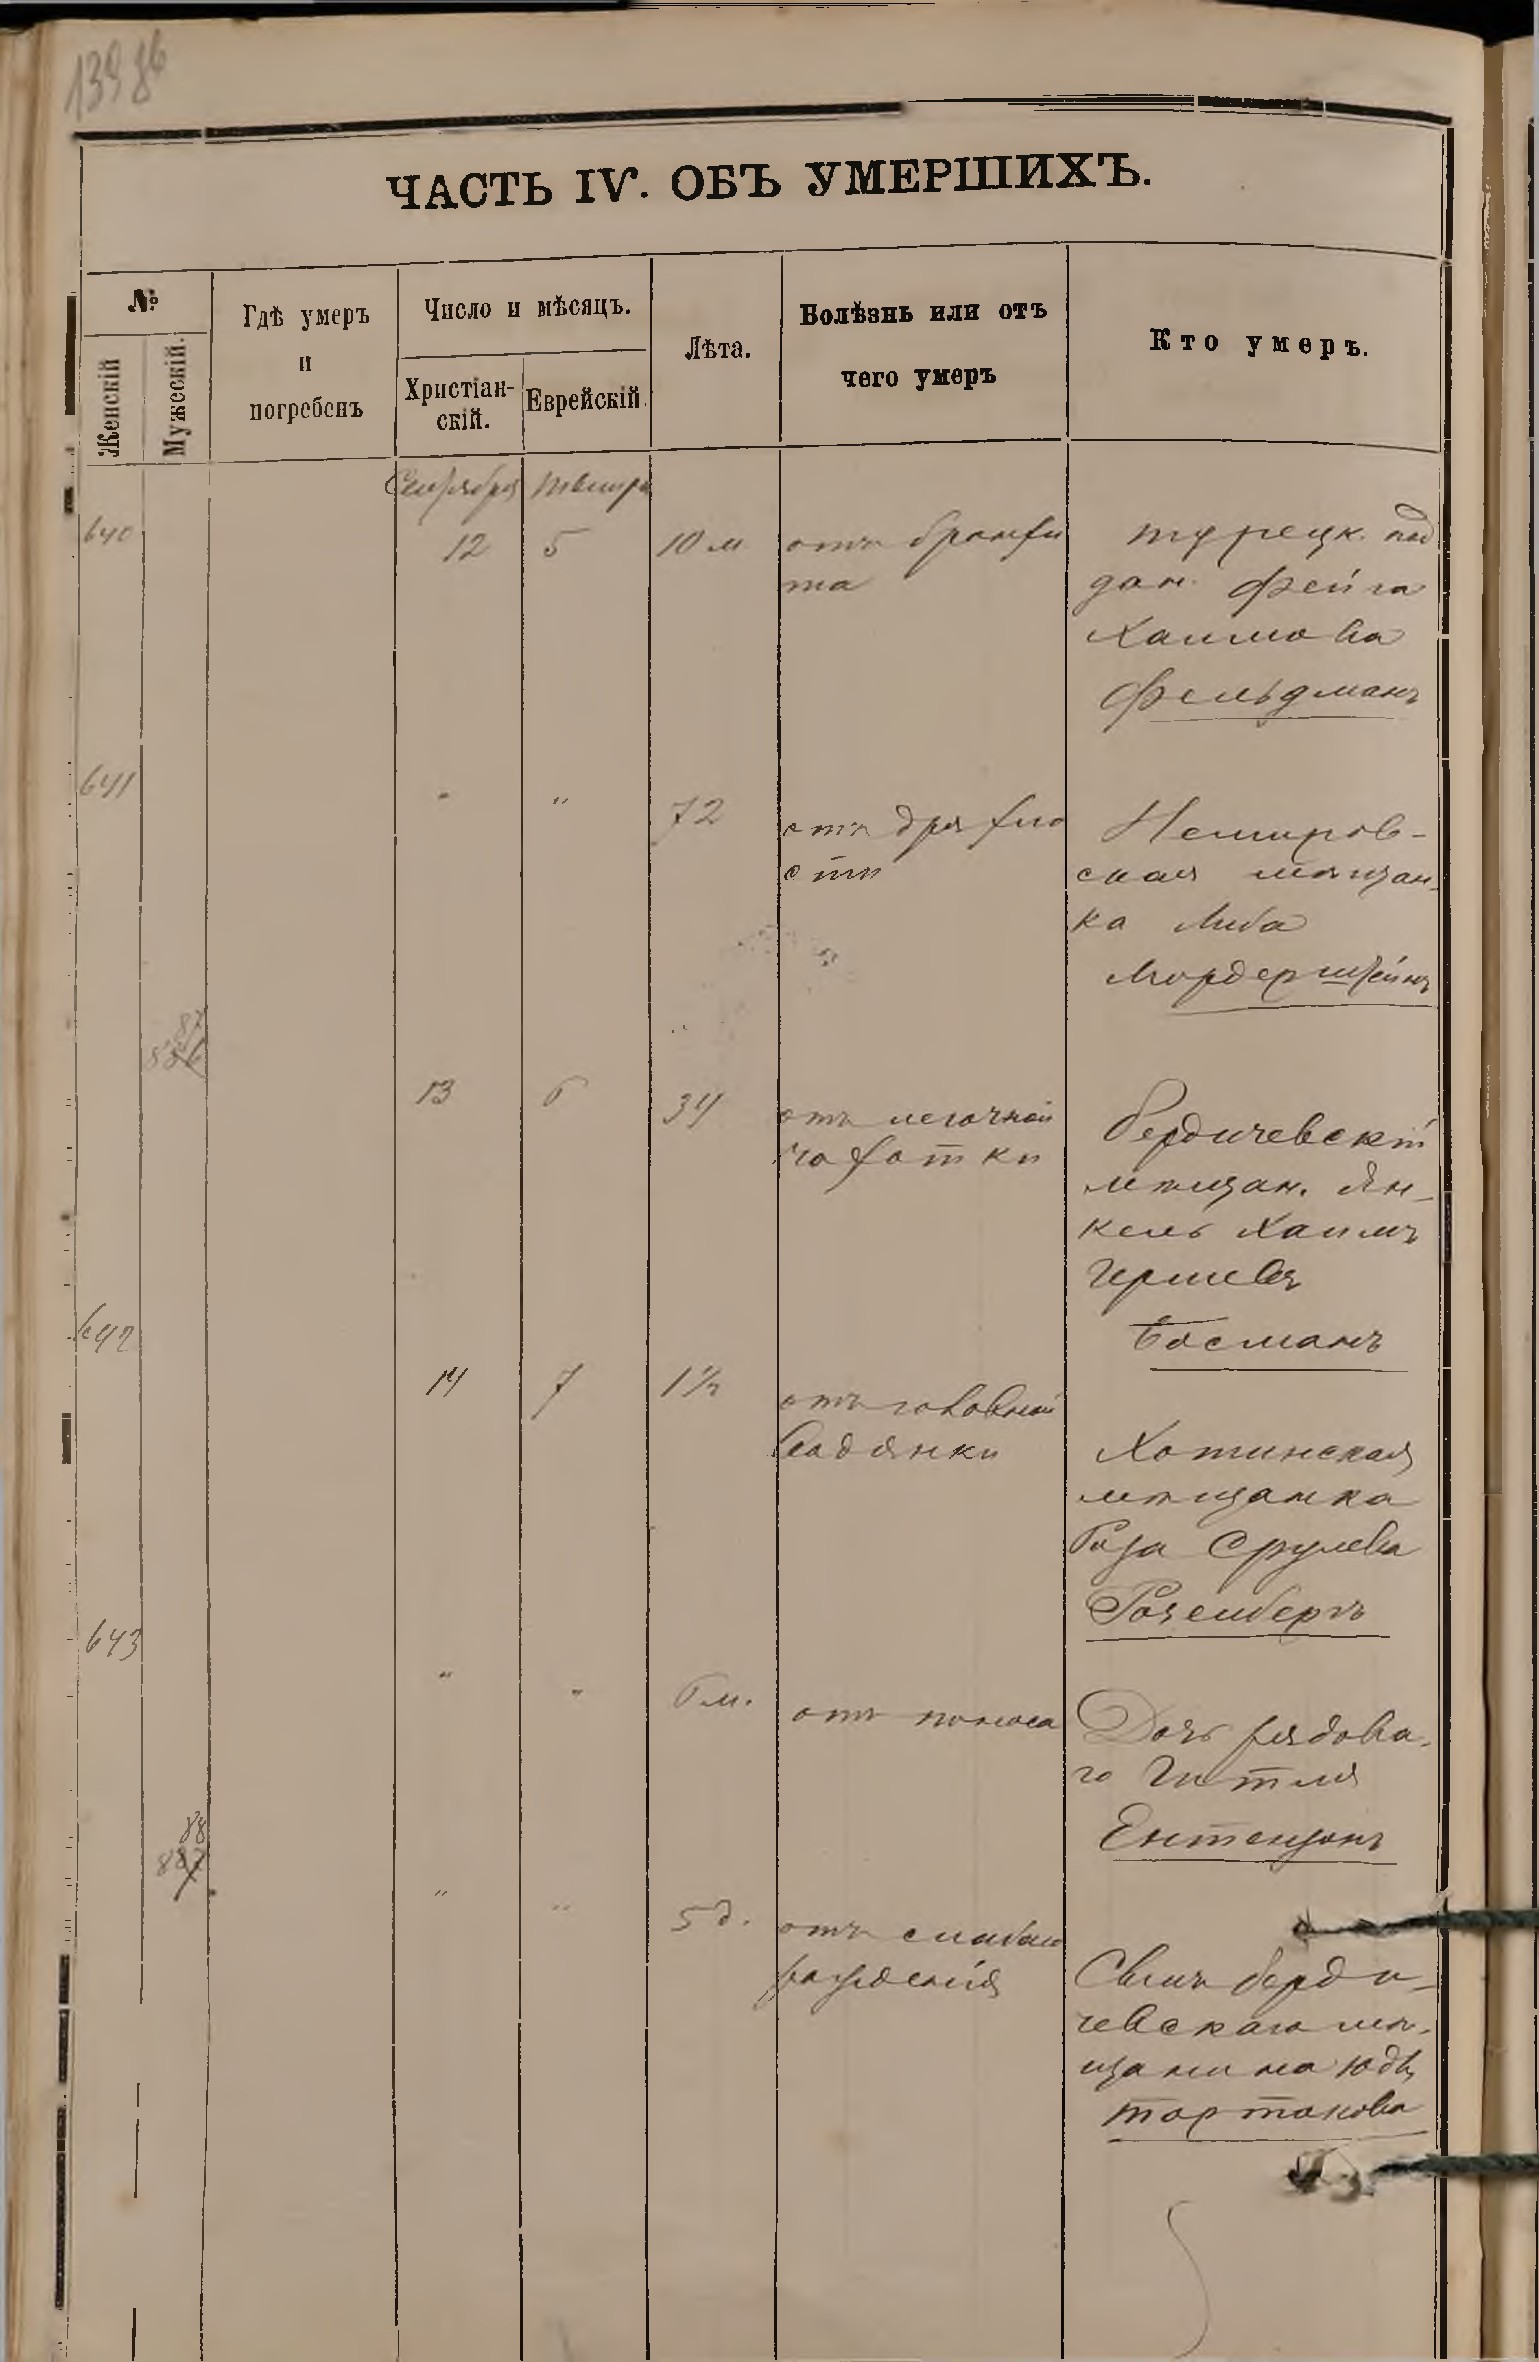 139 86
ЧАСТЬ IV. ОБЪ УМЕРШИХЪ.
№
Женскій
Мужескій.
Гдѣ умеръ
и
погребенъ
Число и мѣсяцъ.
Христіан-
скій.
Еврейскій
Лѣта.
Болѣзнь или отъ
чего умеръ
Кто умеръ.
Сентября
640
12
5
10 м
отъ бронхи
та
турецк. под
дан. Фейга
Хаимова
Фельдманъ
641
"
"
72
отъ дряхло
сти
Немиров-
ская мѣщан-
ка Либа
Мордерштейнъ
87
886
13
6
34
отъ легочной
чахотки
Бердичевскій
мѣщан. Ян-
кель Хаимъ
Гершевъ
Босманъ
642
14
7
1½
отъ головной
водянки
Хотинская
мѣщанка
Роза Срулева
Розенбергъ
643
"
"
6 м.
отъ поноса
Дочь рядова-
го Гитля
88
887
"
"
5 д.
отъ слабаго
рожденія
Сынъ берди-
чевскаго мѣ-
щанина
Тартакова